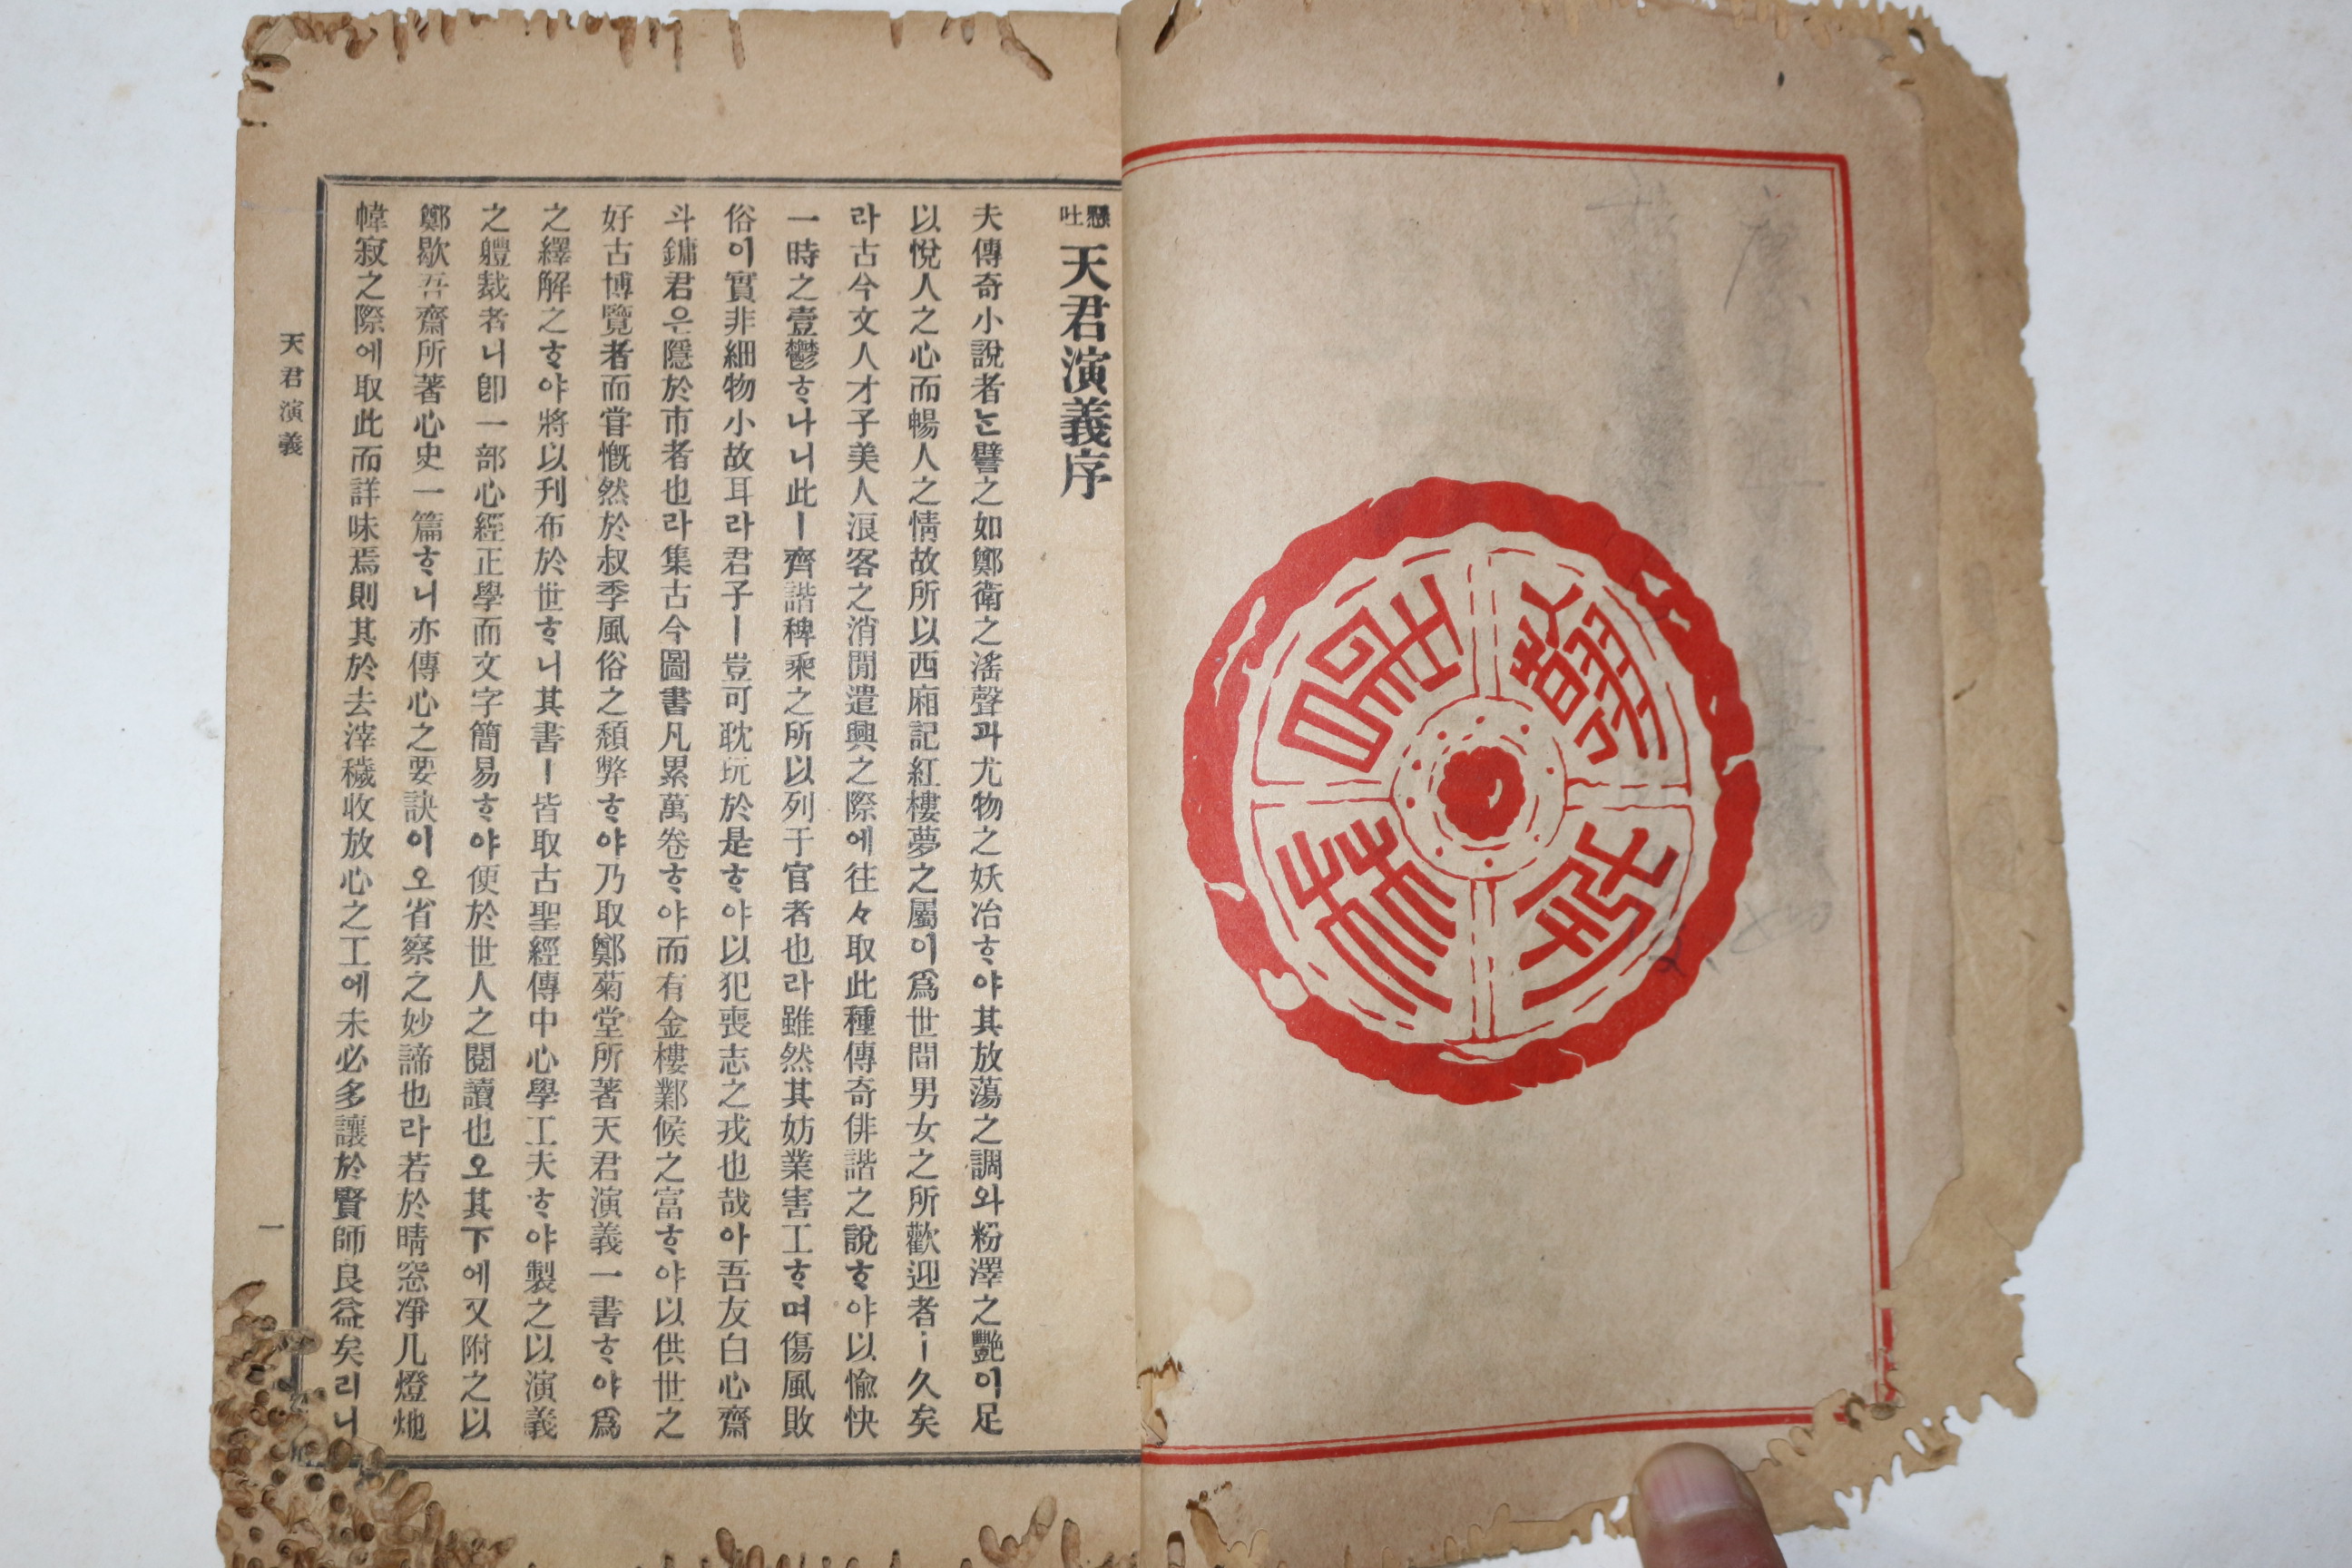 懸吐 天君演義序
夫傳奇小說者는譬之如鄭衛之滛聲과尤物之妖冶ᄒᆞ야其放蕩之調와粉澤之艷이足
以悅人之心而暢人之情故所以西廂記紅樓夢之屬이爲世間男女之所歡迎者ㅣ久矣
라古今文人才子美人浪客之消閒遣興之際에往々取此種傳奇俳諧之說ᄒᆞ야以愉快
一時之壹鬱ᄒᆞ나니此ㅣ齊諧稗乘之所以列于官者也라雖然其妨業害工ᄒᆞ며傷風敗
俗이實非細物小故耳라君子ㅣ豈可耽玩於是ᄒᆞ야以犯喪志之戎也哉아吾友白心齋
斗鏞君은隱於市者也라集古今圖書凡累萬卷ᄒᆞ야而有金樓鄴候之富ᄒᆞ야以供世之
好古博覽者而甞慨然於叔季風俗之頹弊ᄒᆞ야乃取鄭菊堂所著天君演義一書ᄒᆞ야爲
之繹解之ᄒᆞ야將以刋布於世ᄒᆞ니其書ㅣ皆取古聖經傳中心學工夫ᄒᆞ야製之以演義
之軆裁者니卽一部心經正學而文字簡易ᄒᆞ야便於世人之閱讀也오其下에又附之以
鄭歇吾齋所著心史一篇ᄒᆞ니亦傳心之要訣이오省察之妙諦也라若於晴窓凈几燈灺
幃寂之際에取此而詳味焉則其於去滓穢收放心之工에未必多讓於賢師良益矣리니
天君演義
一